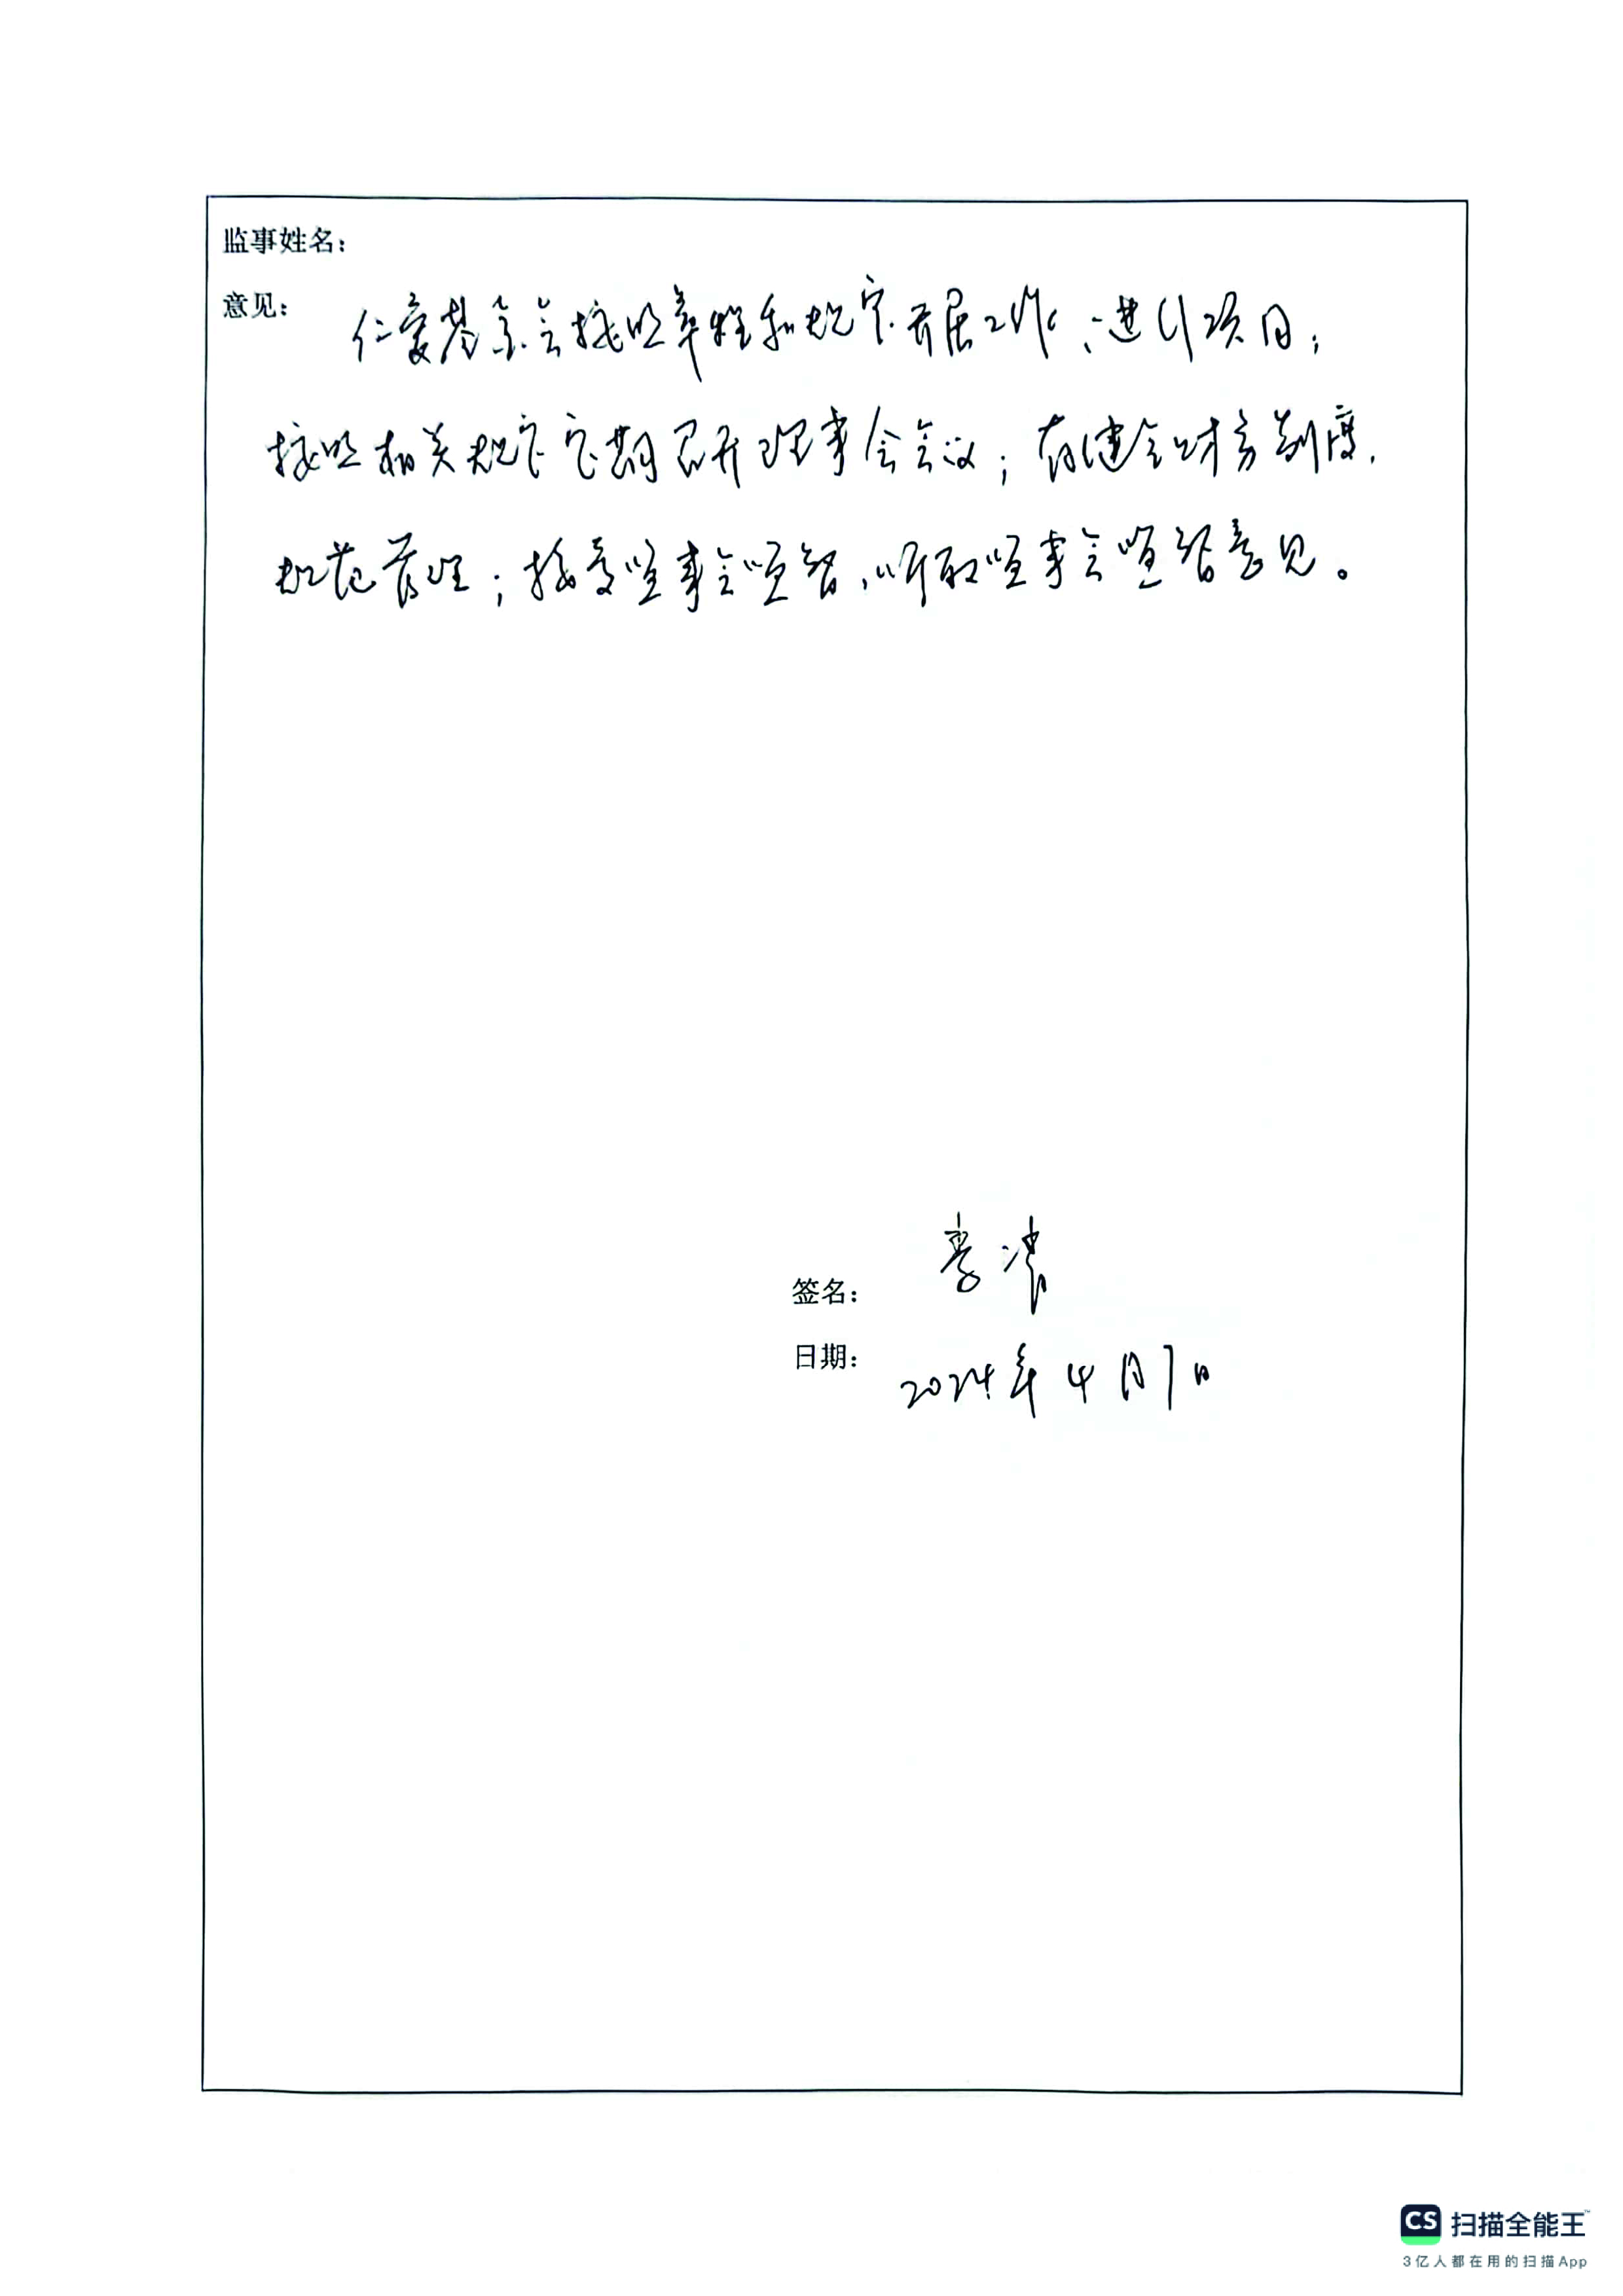 监事姓名:
意见: 仁爱基金会按照章程和规定开展工作、进行项目;
按照相关规定定期召开理事会会议;有健全财务制度,
规范管理;接受监事会监督,听取监事会监督意见。
签名:
日期: 2024年4月7日
CS 扫描全能王™
3亿人都在用的扫描App